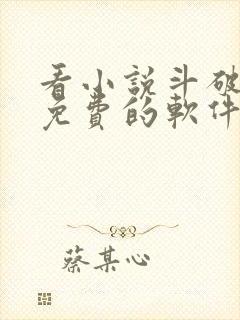 看小説斗破
免費的軟件
蔡某心